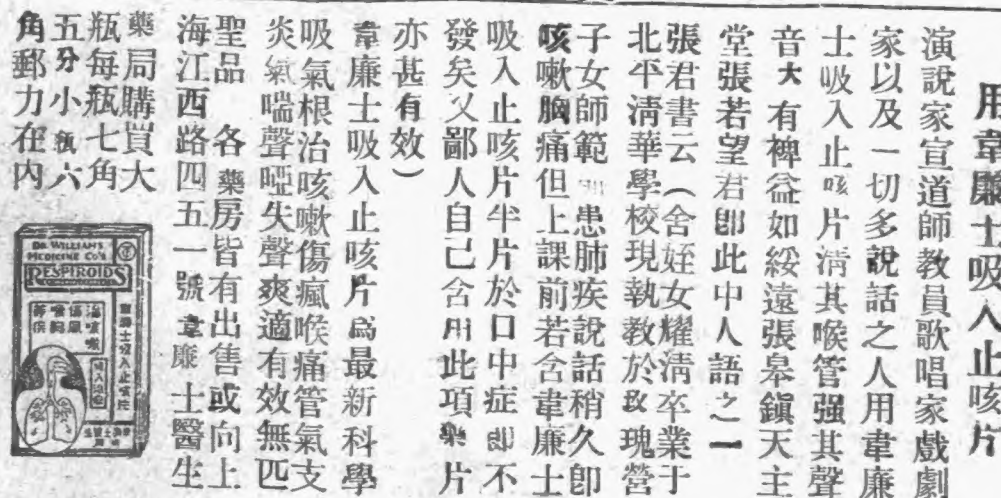 用韋廉士吸入止咳片
演說家宣道師教員歌唱家戲劇
家以及一切多說話之人用韋廉
士吸入止咳片淸其喉管强其聲
音大有裨益如綏遠張皋鎭天主
堂張若望君卽此中人語之一
張君書云（舍姪女耀淸卒業于
北平淸華學校現執教於玫瑰營
子女師範 患肺疾說話稍久卽
咳嗽胸痛但上課前若含韋廉士
吸入止咳片半片於口中症卽不
發矣又鄙人自己含用此項藥片
亦甚有效）
韋廉士吸入止咳片爲最新科學
吸氣根治咳嗽傷瘋喉痛管氣支
炎氣喘聲啞失聲爽適有效無匹
聖品 各藥房皆有出售或向上
海江西路四五一號韋廉士醫生
藥局購買大
瓶每瓶七角
五分小瓶六
角郵力在内
DR. WILLIAMS
MEDICINE CO'S
RESPIROIDS
韋廉士吸入止咳片